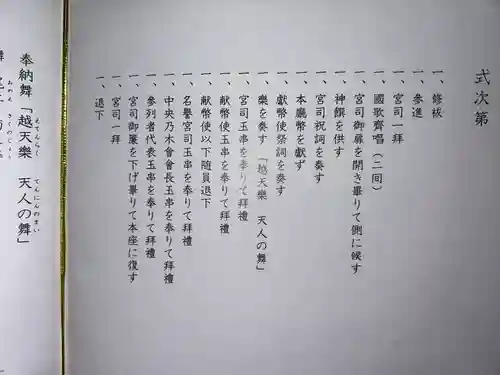 式次第
一、修祓
一、參進
一、宮司一拜
一、國歌齊唱（二回）
一、宮司御扉を開き畢りて側に候す
一、神饌を供す
一、宮司祝詞を奏す
一、本廳幣を獻ず
一、獻幣使祭詞を奏す
一、樂を奏す 「越天樂 天人の舞」
一、宮司玉串を奉りて拜禮
一、獻幣使玉串を奉りて拜禮
一、獻幣使以下隨員退下
一、名譽宮司玉串を奉りて拜禮
一、中央乃木會會長玉串を奉りて拜禮
一、參列者代表玉串を奉りて拜禮
一、宮司御簾を下げ畢りて本座に復す
一、宮司一拜
一、退下
奉納舞「越天樂 天人の舞」
えてんらく てんにんのまい